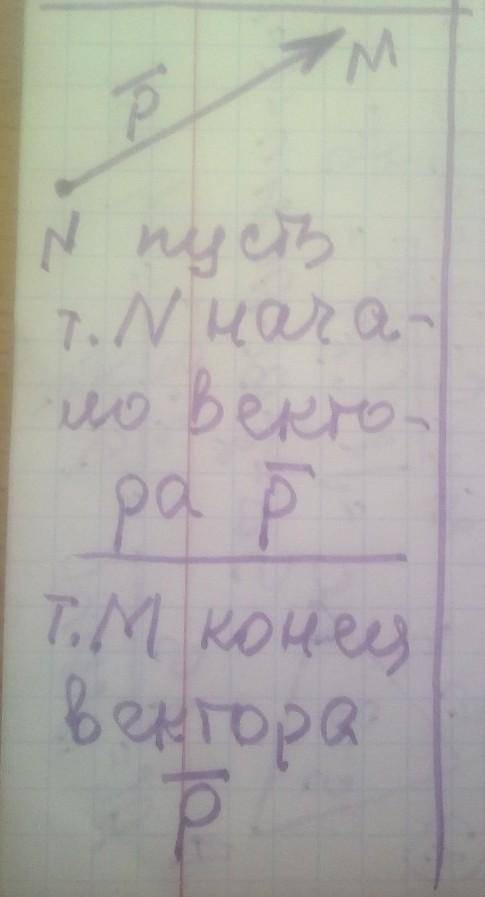 M
p̅
N пусть
т. N нача-
ло векто-
ра p̅
т. M конец
вектора
p̅